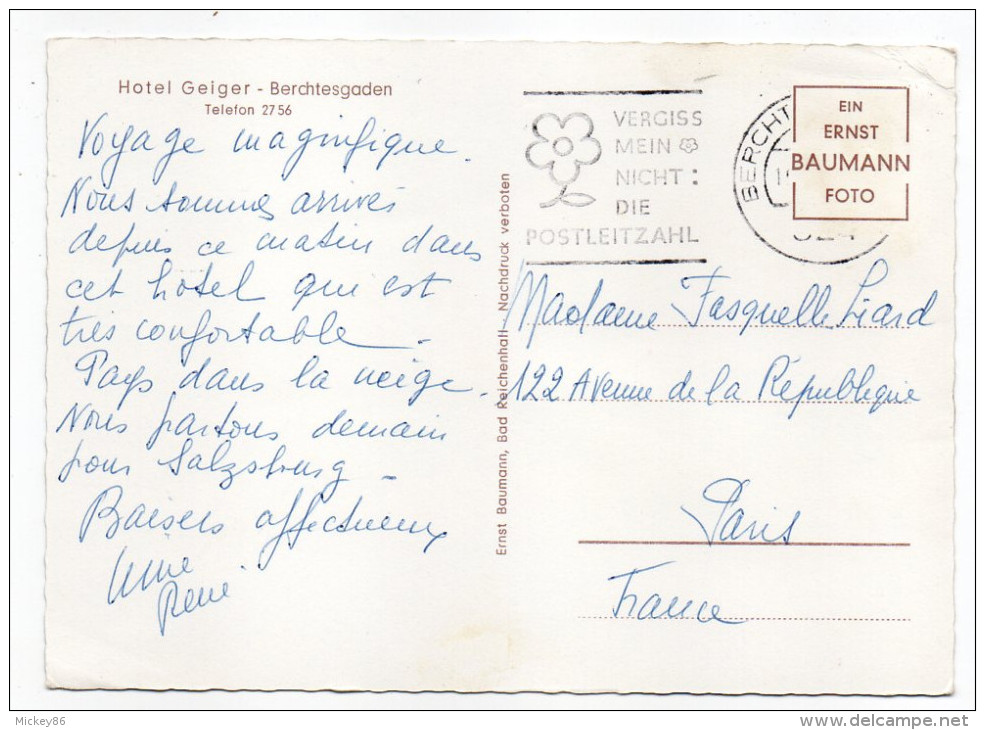 Hotel Geiger - Berchtesgaden
Telefon 2756
Voyage magnifique.
Nous sommes arrivés
depuis ce matin dans
cet hôtel qui est
très confortable -
Pays dans la neige -
Nous partons demain
pour Salzsburg -
Baisers affectueux
René
Ernst Baumann, Bad Reichenhall - Nachdruck verboten
VERGISS
MEIN
NICHT:
DIE
POSTLEITZAHL
BERCHT
EIN
ERNST
BAUMANN
FOTO
Madame Fasquelle Liard
122 Avenue de la République
Paris
France
Mickey86
http://www.delcampe.net